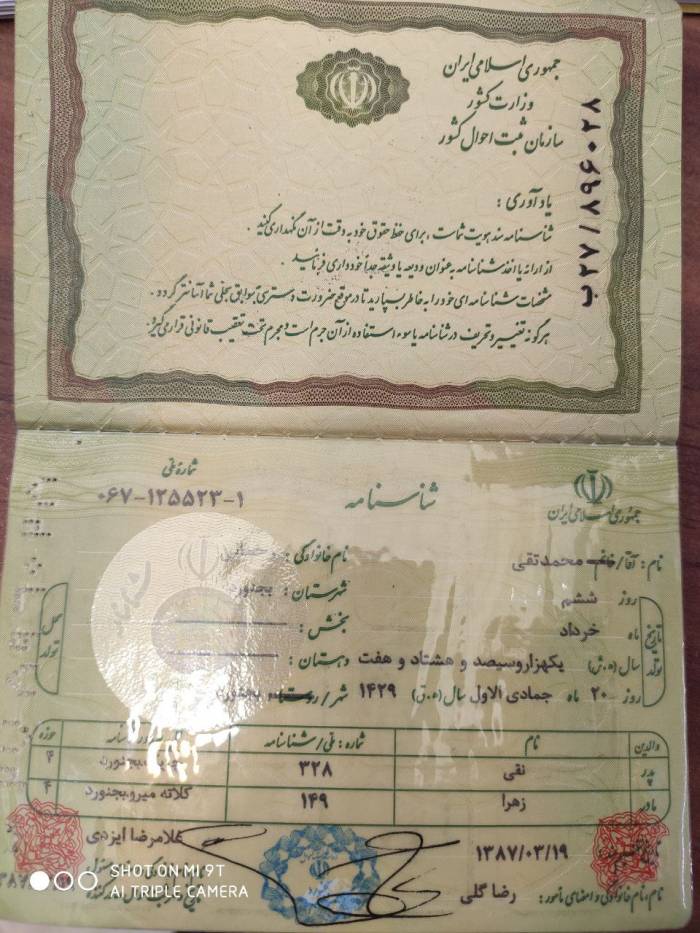 جمهوری اسلامی ایران
وزارت کشور
سازمان ثبت احوال کشور
ب۲۷/۸۹۶۰۲۸
یادآوری :
شناسنامه سند هویت شماست ، برای حفظ حقوق خود به دقت از آن نگهداری کنید .
از ارائه یا اخذ شناسنامه به عنوان ودیعه یا وثیقه جداً خودداری فرمائید .
مشخصات شناسنامه ای خود را به خاطر بسپارید تا در موقع ضرورت دسترسی به سوابق سجلی شما آسانتر گردد .
هرگونه تغییر و تحریف در شناسنامه یا سوء استفاده از آن جرم است و مجرم تحت تعقیب قانونی قرار می گیرد .
جمهوری اسلامی ایران
شناسنامه
شماره ملی
۰۶۷-۱۲۵۵۲۳-۱
نام : آقا/خانم محمدتقی نام خانوادگی :
تاریخ تولد
روز ششم شهرستان : بجنورد
ماه خرداد بخش :
سال (ه.ش) یکهزاروسیصد و هشتاد و هفت دهستان :
روز ۲۰ ماه جمادی الاول سال (ه.ق) ۱۴۲۹ شهر/روستا بجنورد
محل تولد
والدین نام شماره : ملی/شناسنامه حوزه
پدر نقی ۳۲۸ بجنورد ۴
مادر زهرا ۱۴۹ کلاته میرو بجنورد ۴
۱۳۸۷/۰۳/۱۹ غلامرضا ایزدی
نام، نام خانوادگی و امضای مأمور : رضا گلی
SHOT ON MI 9T
AI TRIPLE CAMERA